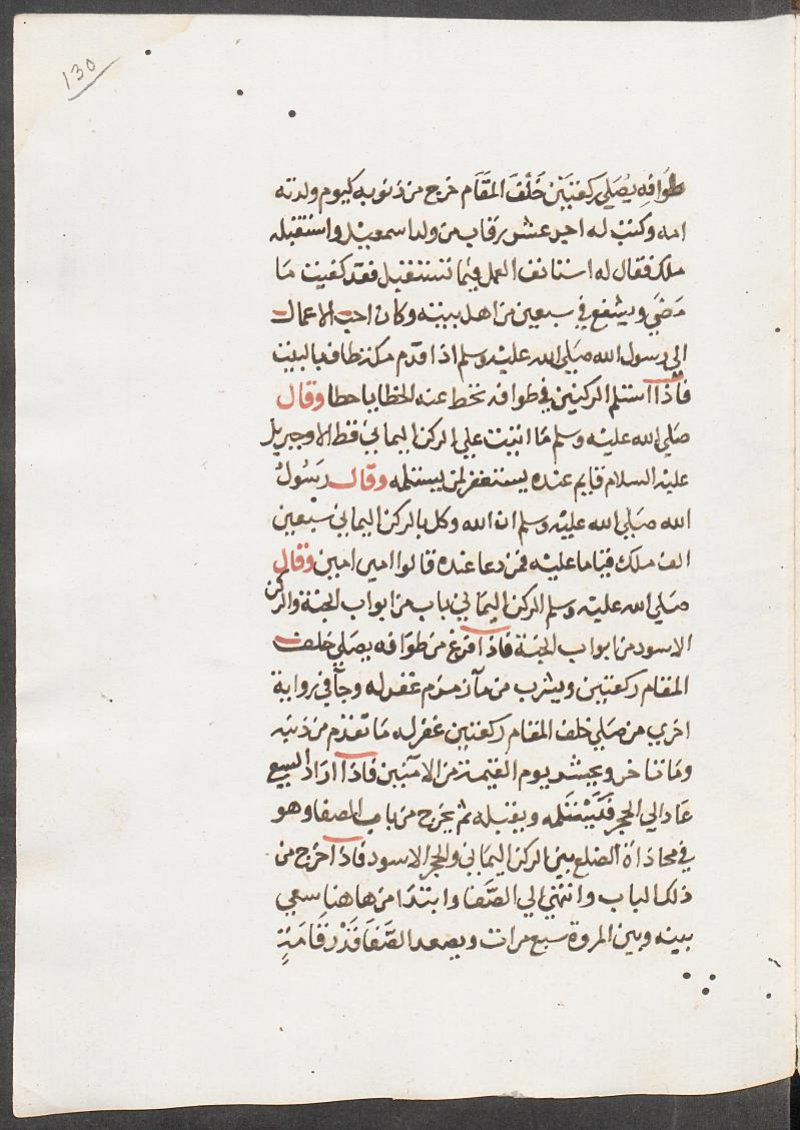 130
طَوافِه يُصَلي ركعتين خَلْفَ المَقَام خرج من ذنوبه كيوم ولدته
امه وكتب له اجر عشر رقاب من ولد اسمعيل واستقبله
ملك فقال له استانف العمل فيما تستقبل فقد كفيت مَا
مَضَي ويشفع في سبعين من اهل بيته وكان احب الاعمال
الي رسول الله صَلي الله عليه وسلم اذا قدم مكة طاف بالبيت
فاذا استلم الركنين في طوافه تحط عنه الخطايا حطا وقال
صَلي الله عليه وسلم مَا اتيت علي الركن اليماني قط الا وجبريل
عليه السلام قايم عنده يستغفر لمن يستلمه وقال رَسُولُ
الله صَلي الله عليه وسلم ان الله وكل بالركن اليماني سبعين
الف ملك قياما عليه فمن دعا عنده قالوا امين امين وقال
صَلي الله عليه وسلم الركن اليمَاني باب من ابواب الجنة والركن
الاسود من ابواب الجنة فاذا فرغ من طوَافه يصَلي خلف
المقام ركعتين ويشرب من مآ زمزم غفر له وجآ في رواية
اخري من صَلي خلف المقام ركعتين غفر له مَا تقدم من ذنبه
ومَا تاخر ويحشر يوم القيمة من الامنين فاذا ارَاد السعي
عَاد الي الحجر فَيَسْتَلمه ويقبله ثم يخرج من باب الصفا وهو
في محاذاة الضلع بين الركن اليمَاني والحجر الاسود فاذا خرج من
ذلك الباب وانتهي الي الصَّفا وابتدَا من هاهنا سعي
بينه وبين المروة سبع مرات ويصعد الصَّفَا قَدْرَ قَامَةٍ